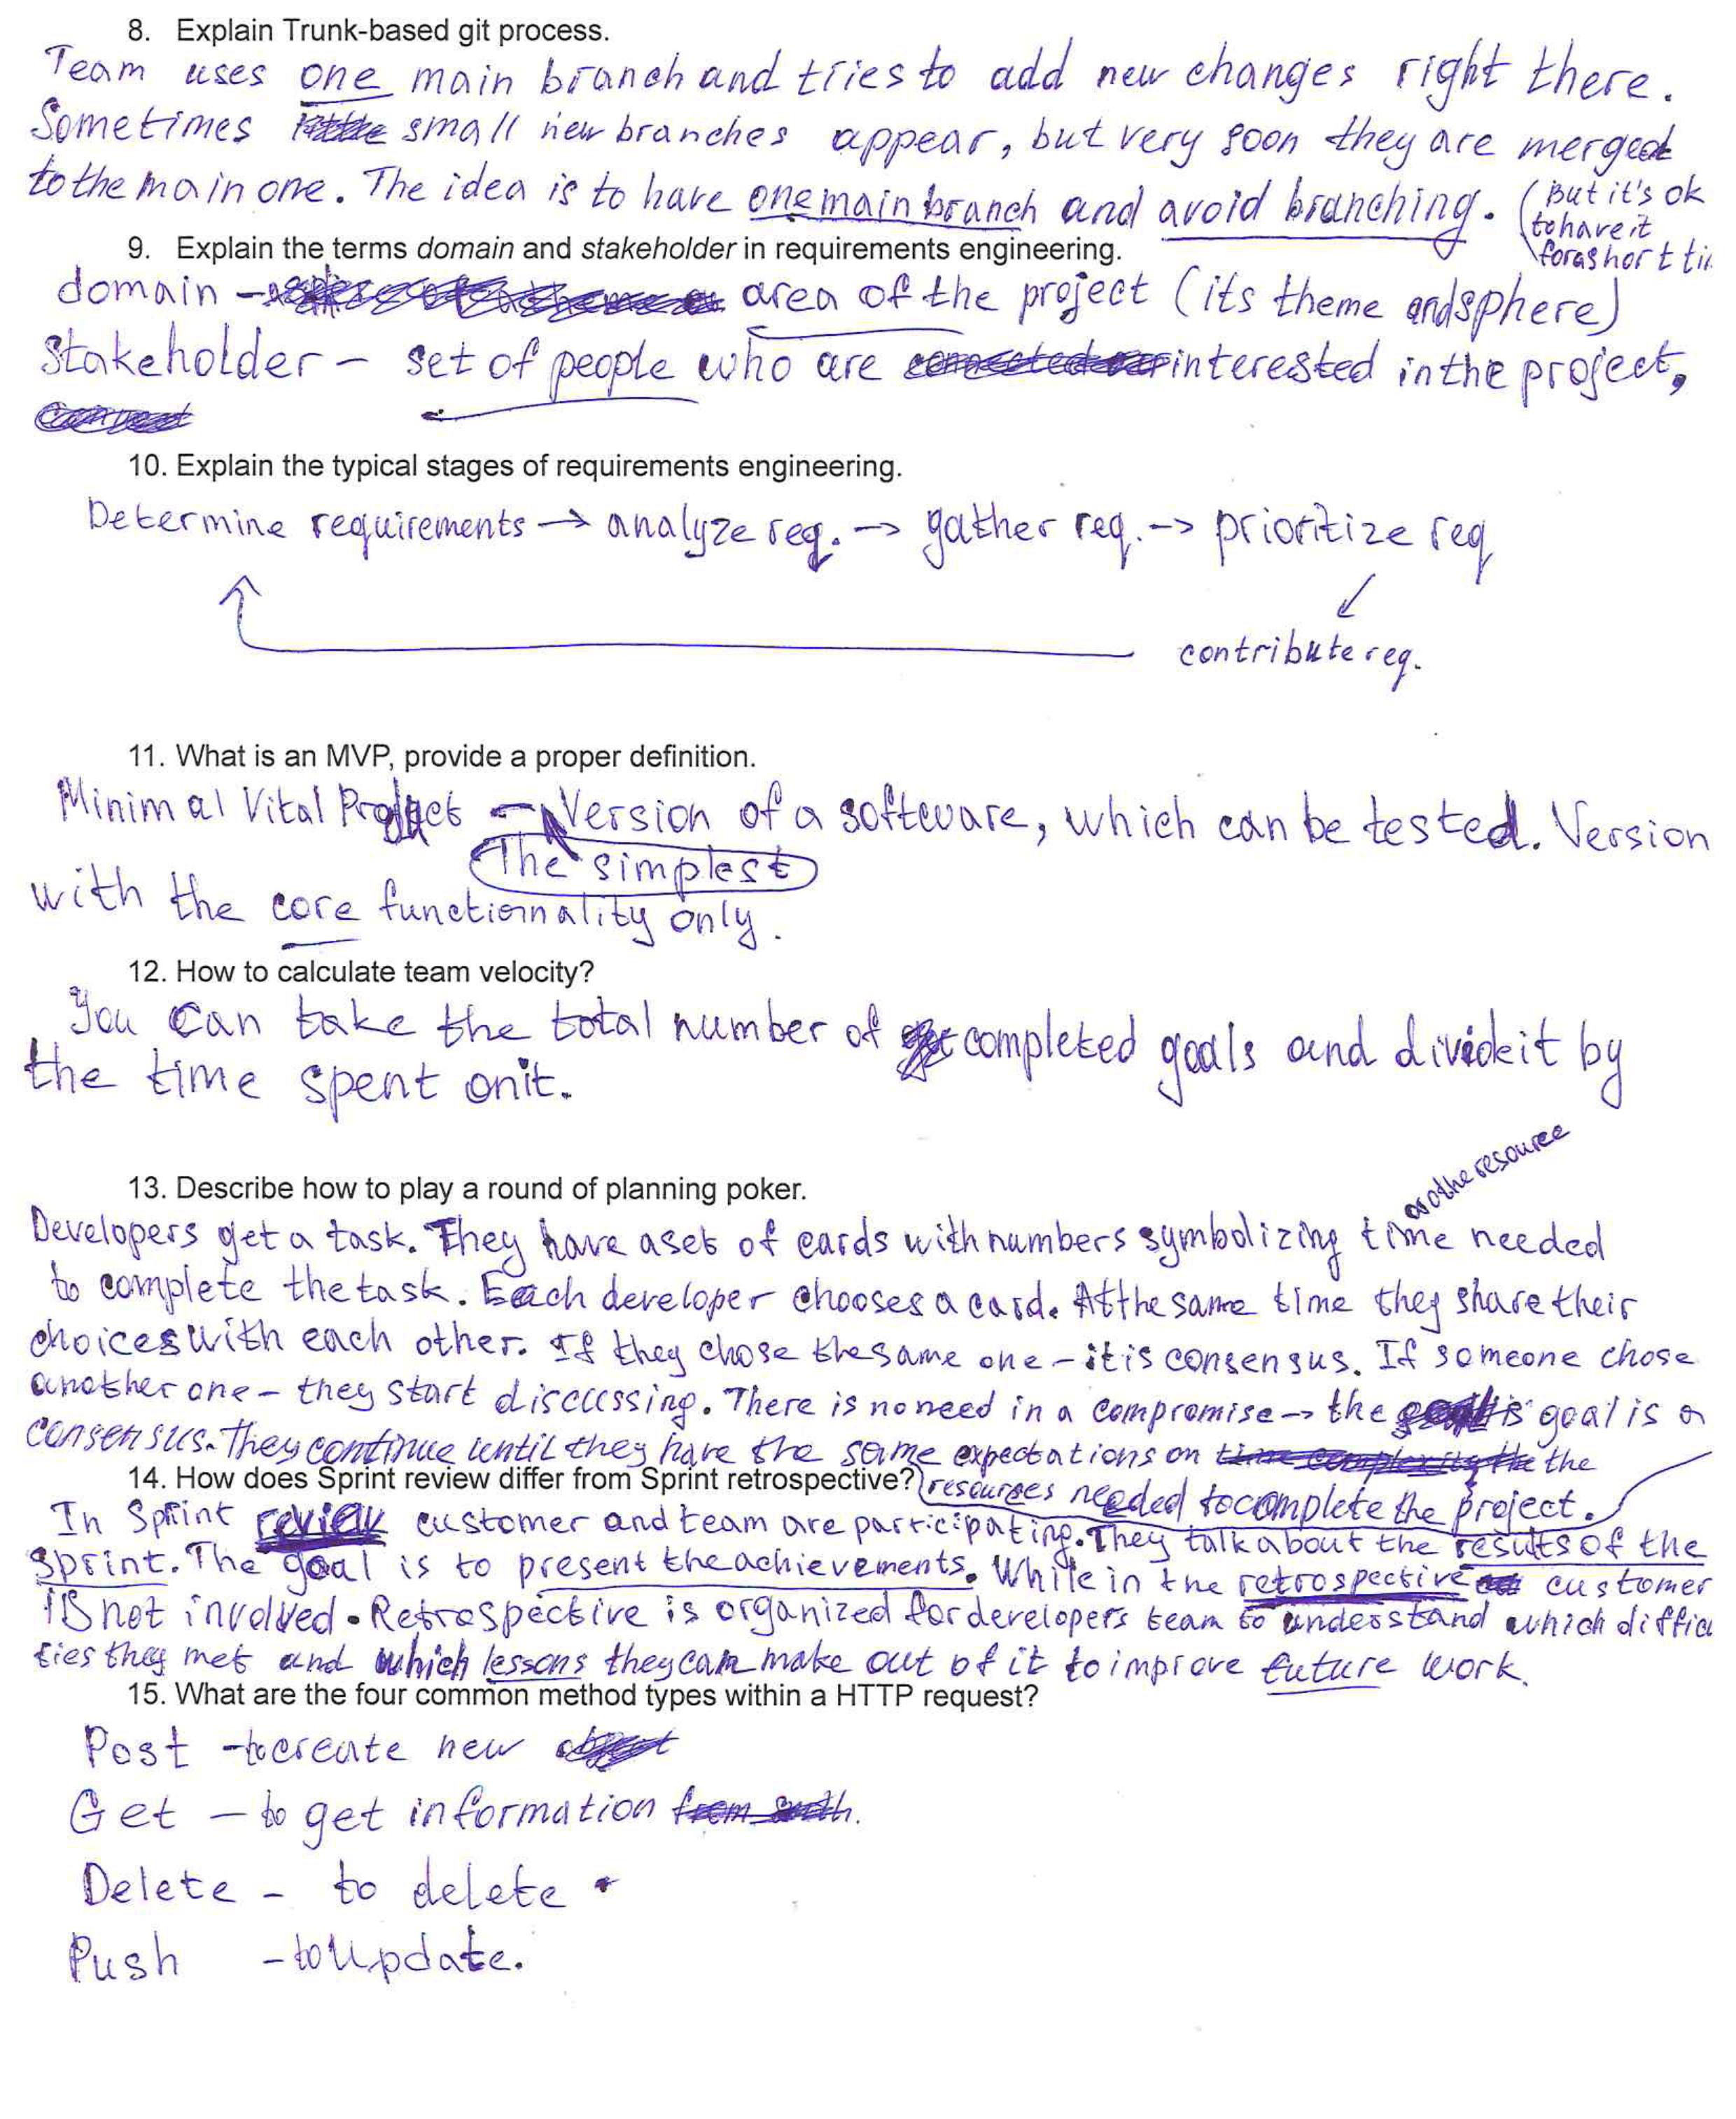 8. Explain Trunk-based git process.
Team uses one main branch and tries to add new changes right there.
Sometimes small new branches appear, but very soon they are merged
to the main one. The idea is to have one main branch and avoid branching. (But it's ok
to have it
for a short ti
9. Explain the terms domain and stakeholder in requirements engineering.
domain - area of the project (its theme and sphere)
Stakeholder - set of people who are interested in the project,
10. Explain the typical stages of requirements engineering.
Determine requirements -> analyze req. -> gather req. -> prioritize req
contribute req.
11. What is an MVP, provide a proper definition.
Minimal Vital Product - Version of a software, which can be tested. Version
The simplest
with the core functionnality only.
12. How to calculate team velocity?
You can take the total number of completed goals and divide it by
the time spent on it.
or othe resource
13. Describe how to play a round of planning poker.
Developers get a task. They have a set of cards with numbers symbolizing time needed
to complete the task. Each developer chooses a card. At the same time they share their
choices with each other. If they chose the same one - it is consensus. If someone chose
another one - they start discussing. There is no need in a compromise -> the goal is a
consensus. They continue until they have the same expectations on the
14. How does Sprint review differ from Sprint retrospective?
resources needed to complete the project.
In Sprint review customer and team are participating. They talk about the results of the
sprint. The goal is to present the achievements. While in the retrospective customer
is not involved. Retrospective is organized for developers team to understand which difficu
ties they met and which lessons they can make out of it to improve future work.
15. What are the four common method types within a HTTP request?
Post - to create new
Get - to get information
Delete - to delete
Push - to Update.